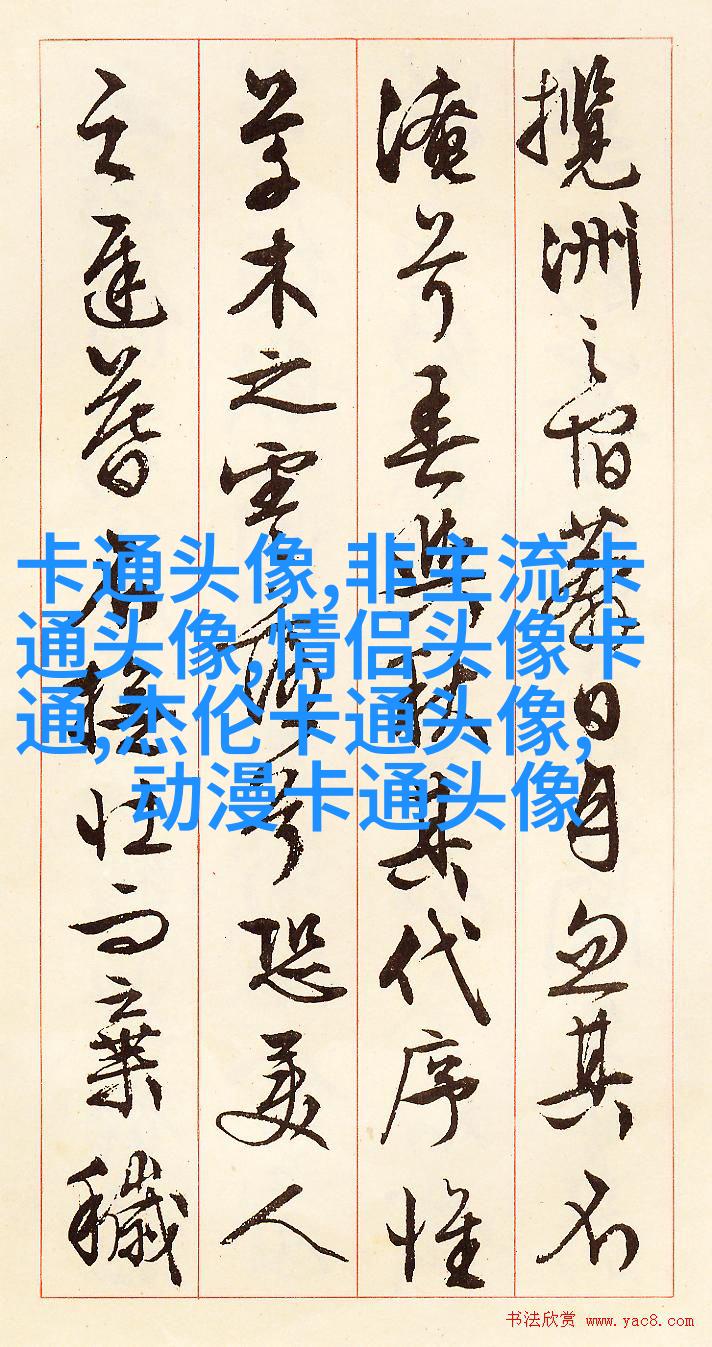 攬洲之宿莽日月忽其不
淹兮春與秋其代序惟
草木之零落兮恐美人
之遲暮不撫壯而棄穢
卡通头像,非主流卡
通头像,情侣头像卡
通,杰伦卡通头像,
动漫卡通头像
书法欣赏 www.yac8.com